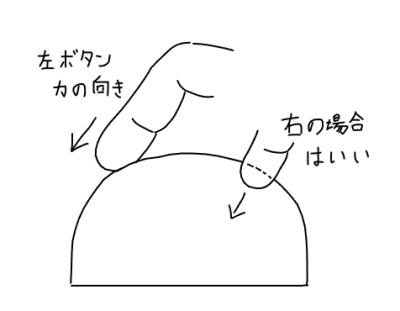 左ボタン
力の向き
右の場合
はいい